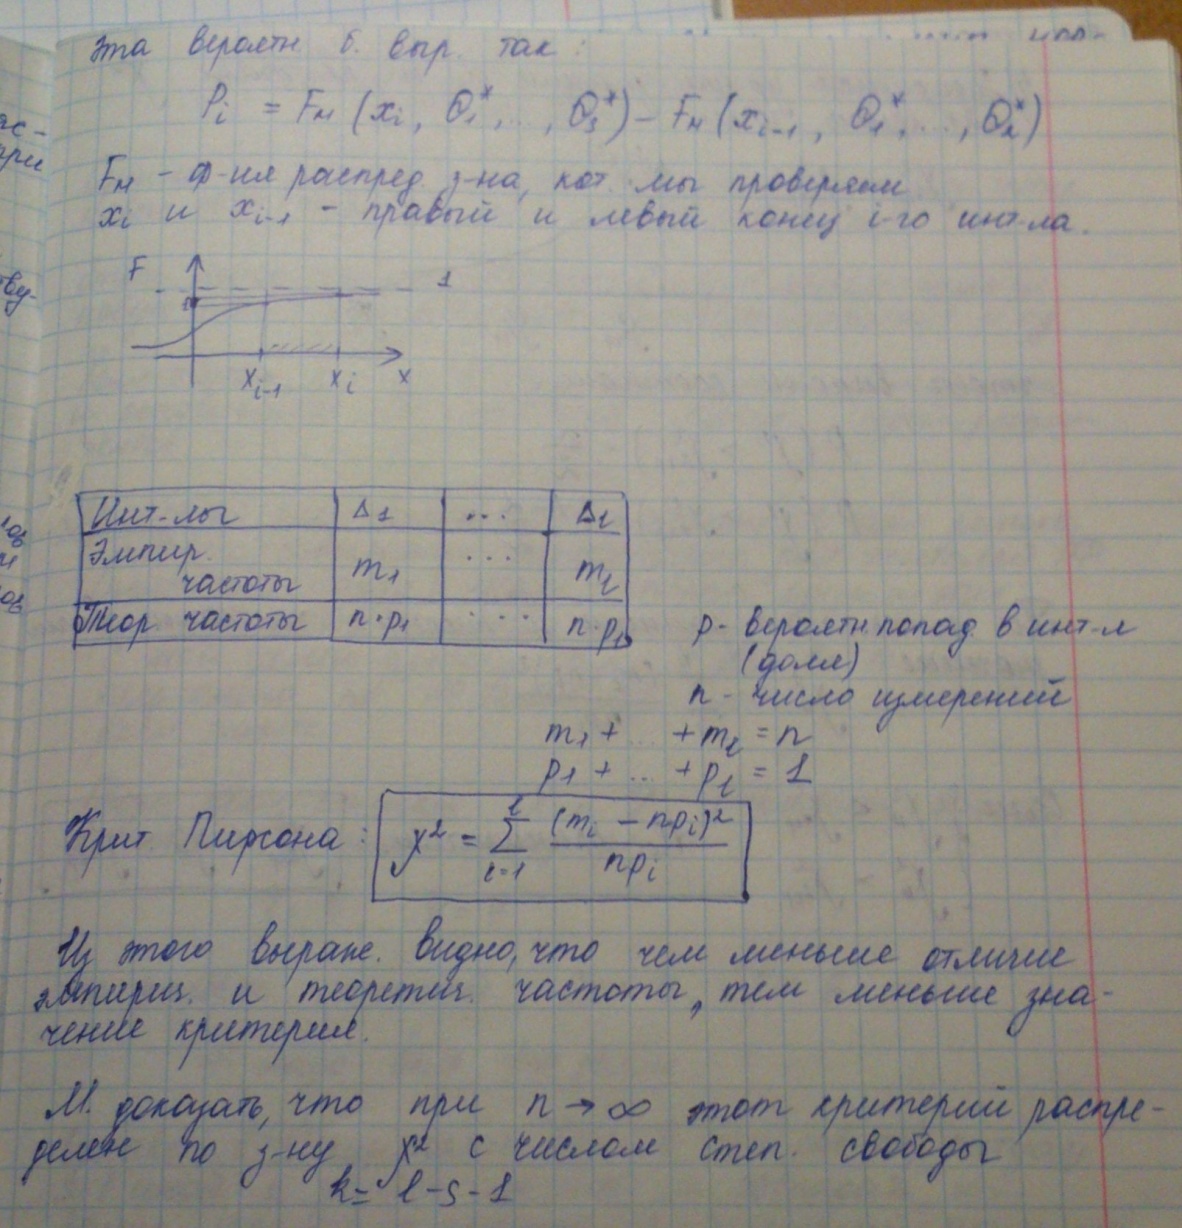 эта вероятн б. выр. так:
Pi = Fм (xi, Θ1*, ..., Θs*) - Fм (xi-1, Θ1*, ..., Θs*)
Fм - ф-ия распред. з-на, кот. мы проверяем
xi и xi-1 - правый и левый конец i-го инт-ла.
F
1
xi-1 xi x
Инт-лы Δ1 ... Δl
Эмпир. частоты m1 ... ml
Теор. частоты n·p1 ... n·pl
p - вероятн попад. в инт-л
(доля)
n - число измерений
m1 + ... + ml = n
p1 + ... + pl = 1
Крит Пирсона: χ² = Σ i=1 l (mi - npi)² / npi
Из этого выраж. видно, что чем меньше отличие
эмпирич. и теоретич. частоты, тем меньше зна-
чение критерия.
М. доказать, что при n → ∞ этот критерий распре-
делен по з-ну χ² с числом степ. свободы
k = l - s - 1